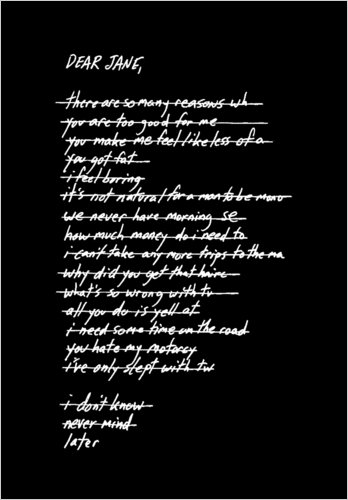 DEAR JANE,
there are so many reasons wh
you are too good for me
you make me feel like less of a
you got fat
i feel boring
it's not natural for a man to be mono
we never have morning se
how much money do i need to
i can't take any more trips to the ma
why did you get that hairc
what's so wrong with tv
all you do is yell at
i need some time on the road
you hate my motorcy
i've only slept with tw
i don't know
never mind
later